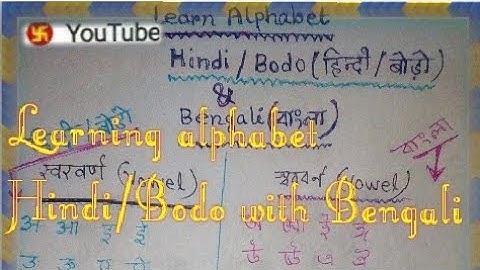 Learn Alphabet
YouTube
Hindi/Bodo (हिन्दी/बोड़ो)
&
Bengali (বাংলা)
Learning alphabet
Hindi/Bodo with Bengali
বাংলা
स्वरवर्ण (Vowel)
স্বরবর্ন (Vowel)
अ आ इ ई
অ আ ই ঈ
उ ऊ ए ऐ